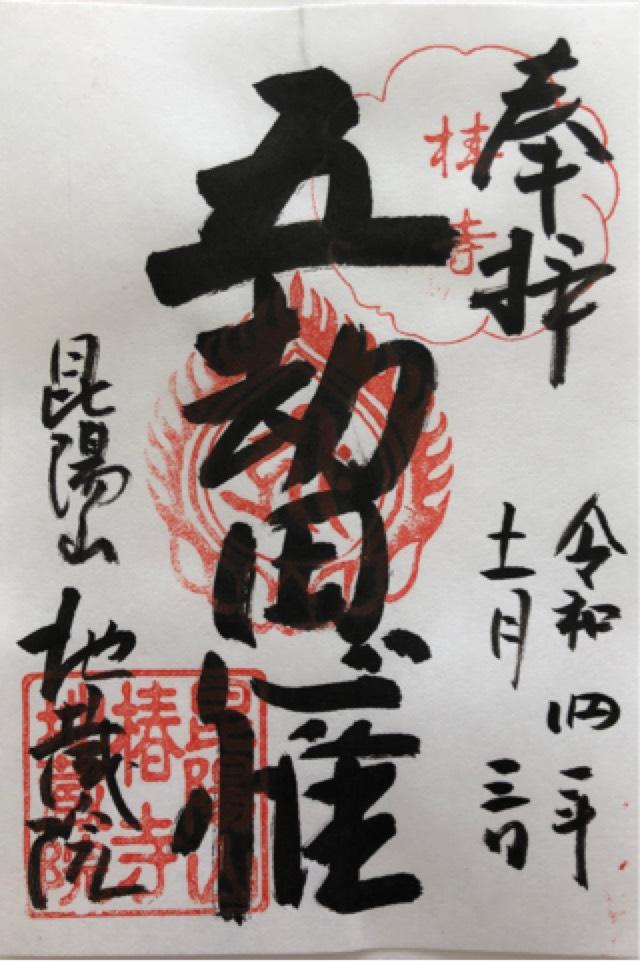 奉拝
椿寺
令和四年
十一月三日
五劫思惟
昆陽山
地蔵院
昆陽山
椿寺
地蔵院